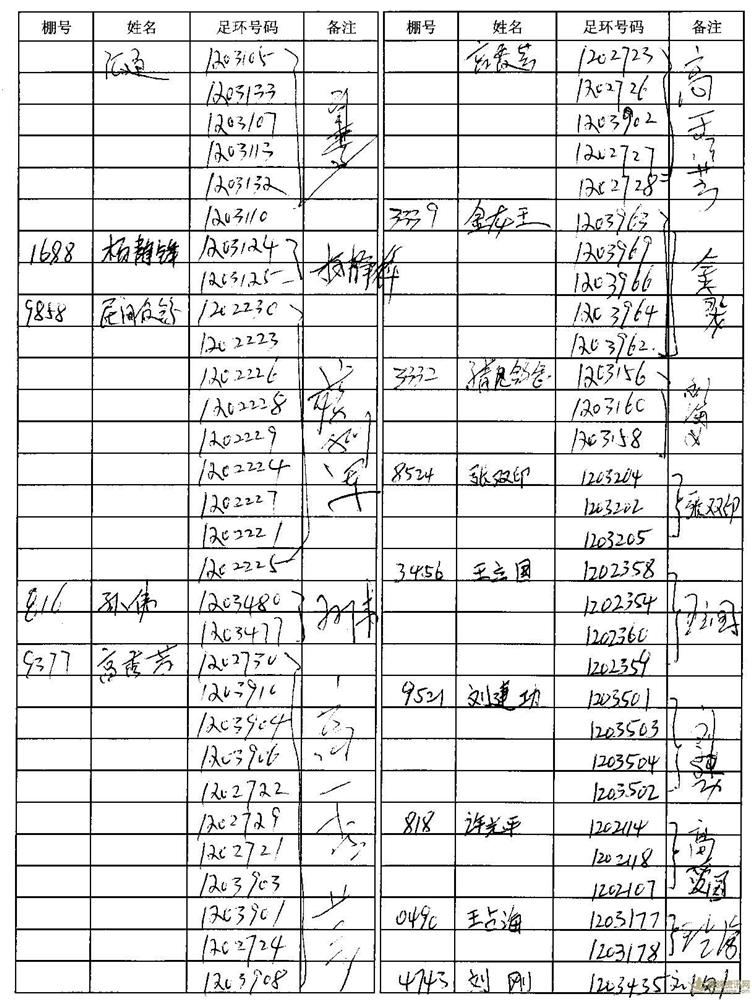 棚号 姓名 足环号码 备注
1203105
1203133
1203107
1203113
1203132
1203110
1688 杨静锋 1203124
1203125
9858 1202230
1202223
1202226
1202228
1202229
1202224
1202227
1202221
1202225
816 孙伟 1203480 孙伟
1203477
9377 高秀芳 1202730
1203910
1203904
1203906
1202722
1202729
1202721
1203903
1203901
1202724
1203908
棚号 姓名 足环号码 备注
1202723
1202726
1203902
1202727
1202728
3339 金龙王 1203963
1203969
1203966
1203964
1203962
3332 1203156
1203160
1203158
8524 张双印 1203204
1203202 张双印
1203205
3456 王立国 1202358
1202354 王立国
1202360
1202359
9521 刘建功 1203501
1203503 刘建功
1203504
1203502
818 许光平 1202114
1202118
1202107
0490 王占海 1203177
1203178
4743 刘刚 1203435 刘刚